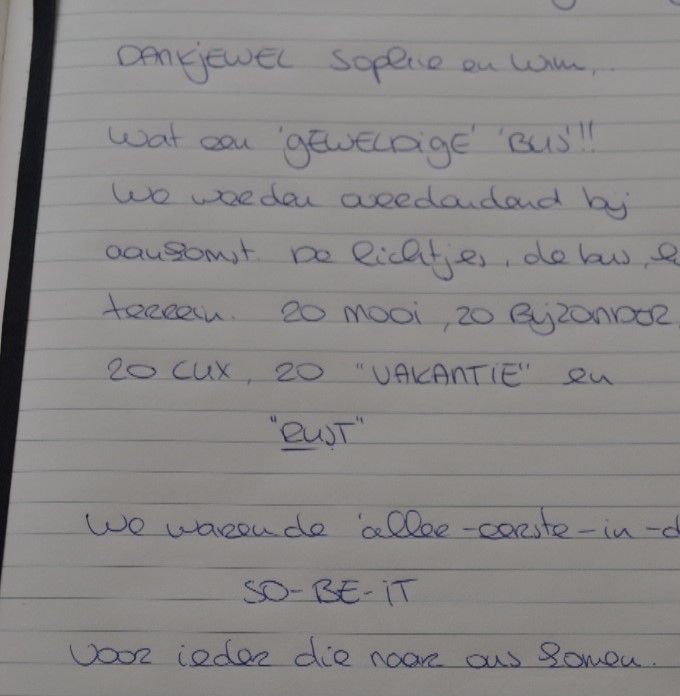 DANKJEWEL Sophie en Wim,..
Wat een 'GEWELDIGE' 'BUS'!!
We werden overdonderd bij
aankomst. De lichtjes, de bus, e
terrein. ZO MOOI, ZO BIJZONDER
ZO LUX, ZO "VAKANTIE" en
"RUST"
We waren de 'aller-eerste-in-d
SO-BE-IT
Voor ieder die naar ons komen.